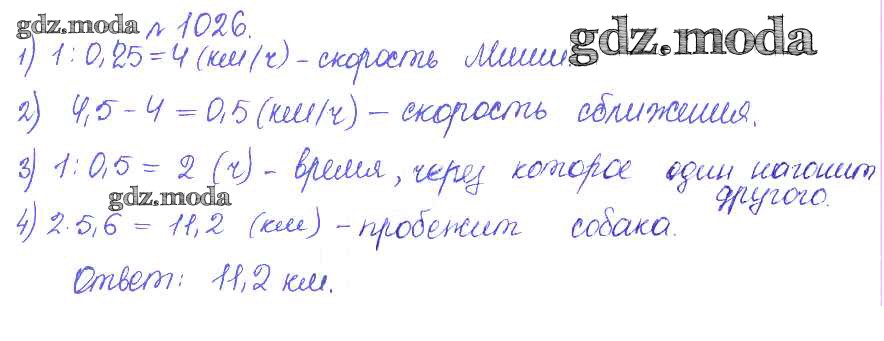 gdz.moda № 1026.
1) 1 : 0,25 = 4 (км/ч) - скорость Миши gdz.moda
2) 4,5 - 4 = 0,5 (км/ч) - скорость сближения.
3) 1 : 0,5 = 2 (ч) - время, через которое один нагонит
другого.
gdz.moda
4) 2 · 5,6 = 11,2 (км) - пробежит собака.
Ответ: 11,2 км.